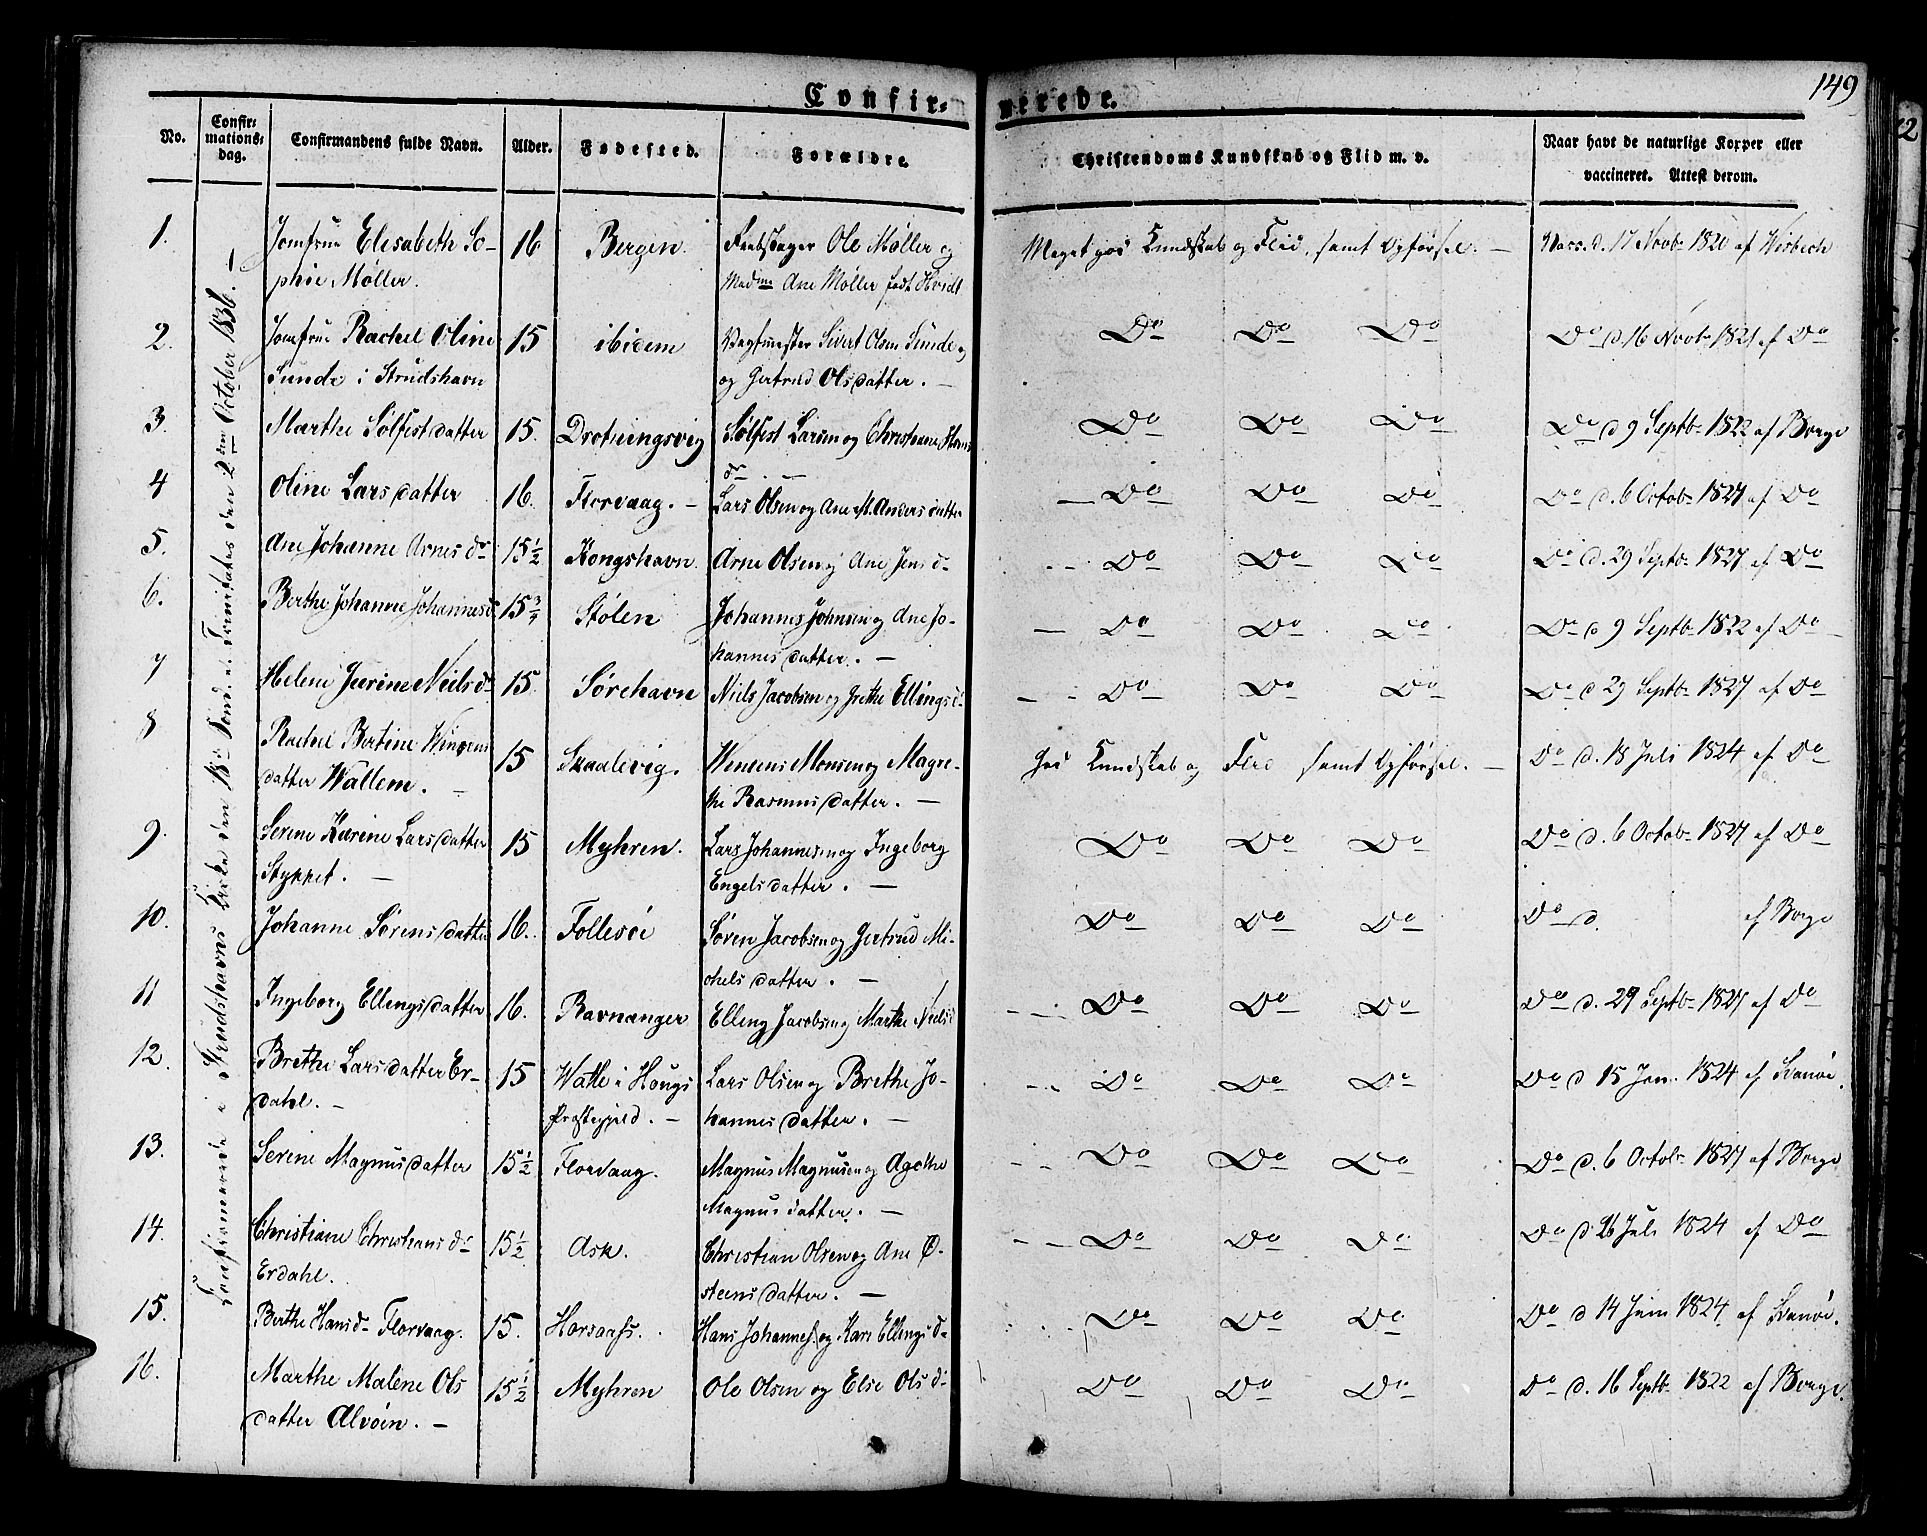 149
Confirmerede.
No.
Confirmationsdag.
Confirmandens fulde Navn.
Alder.
Fødested.
Forældre.
Christendoms Kundskab og Flid m. v.
Naar havt de naturlige Kopper eller
vaccineret. Attest derom.
Confirmerede i Strudshavns Kirke den 18de Sønd. e. Trinitatis den 2den October 1836. –
1. Jomfrue Elisabeth So- 16 Bergen. Ole Møller og Meget god Kundskab og Flid, samt Opførsel. – Vacc. d. 17 Novb. 1820 af Wisbech
phie Møller. Madme Ane Møller født Hvidt
2. Jomfrue Rachel Oline 15 ibidem Vagtmester Sivert Olsen Sunde Do Do Do Do d. 16 Novb. 1821 af Do
Sunde i Strudshavn og Gertrud Olsdatter. –
3. Marthe Sølfestdatter 15. Drotningsvig Sølfest Larsen og Christiane Hans Do Do Do Do d 9 Septb. 1822 af Borge
dr. –
4 Oline Larsdatter 16. Florvaag. – Lars Olsen og Ane Andersdatter Do Do Do Do d. 6 Octob. 1827 af Do
5. Ane Johanne Arnesdr 15 1/2 Kongshavn. Arne Olsen og Ane Jensd. Do Do Do Do d. 29 Septb. 1827 af Do
6. Berthe Johanne Johannesd 15 3/4 Stølen Johannes Johnsen og Ane Jo- Do Do Do Do d 9 Septb. 1822 af Do
hannesdatter. –
7 Helene Jverine Nielsdr 15. Sørehavn Niels Jacobsen og Grethe Ellingsd. Do Do Do Do d 29 Septb. 1827 af Do
8 Rachel Bertine Winsens 15 Skaalevig. Wincens Monsen og Magre- God Kundskab og Flid samt Opførsel. – Do d. 18 Juli 1824 af Do
datter Wallem. – the Rasmusdatter. –
9. Serine Karine Larsdatter 15 Myhren. Lars Johannesen og Ingeborg Do Do Do Do d. 6 Octob. 1827 af Do
Stykket. – Engelsdatter. –
10. Johanne Sørensdatter 16. Follesøe Søren Jacobsen og Gertrud Mi- Do Do Do Do d. af Borge
chelsdatter. –
11 Ingeborg Ellingsdatter 16. Ravnanger Elling Jacobsen og Marthe Nielsd Do Do Do Do d. 29 Septb. 1827 af Do
12. Brethe Larsdatter Er- 15 Watle i Hougs Lars Olsen og Brethe Jo- Do Do Do Do d 15 Jan. 1824 af Svanøe.
dahl. – Præstegjeld. – hannesdatter. –
13. Serine Magnusdatter 15 1/2 Florvaag. Magnus Magnusen og Agethe Do Do Do Do d. 6 Octob. 1827 af Borge
Magnusdatter. –
14. Christiane Christians d. 15 1/2 Ask. Christian Olsen og Ane Ø- Do Do Do Do d 26 Juli 1824 af Do
Erdahl. steensdatter. –
15. Berthe Hansd. Florvaag. 15. Horsøens. Hans Johannes. og Kari Ellings d. Do Do Do Do d 14 Juni 1824 af Svanøe.
16. Marthe Malene Ols 15 1/2 Myhren Ole Olsen og Else Ols d. Do Do Do Do d. 16 Septb. 1822 af Borge.
datter Alvøen. –